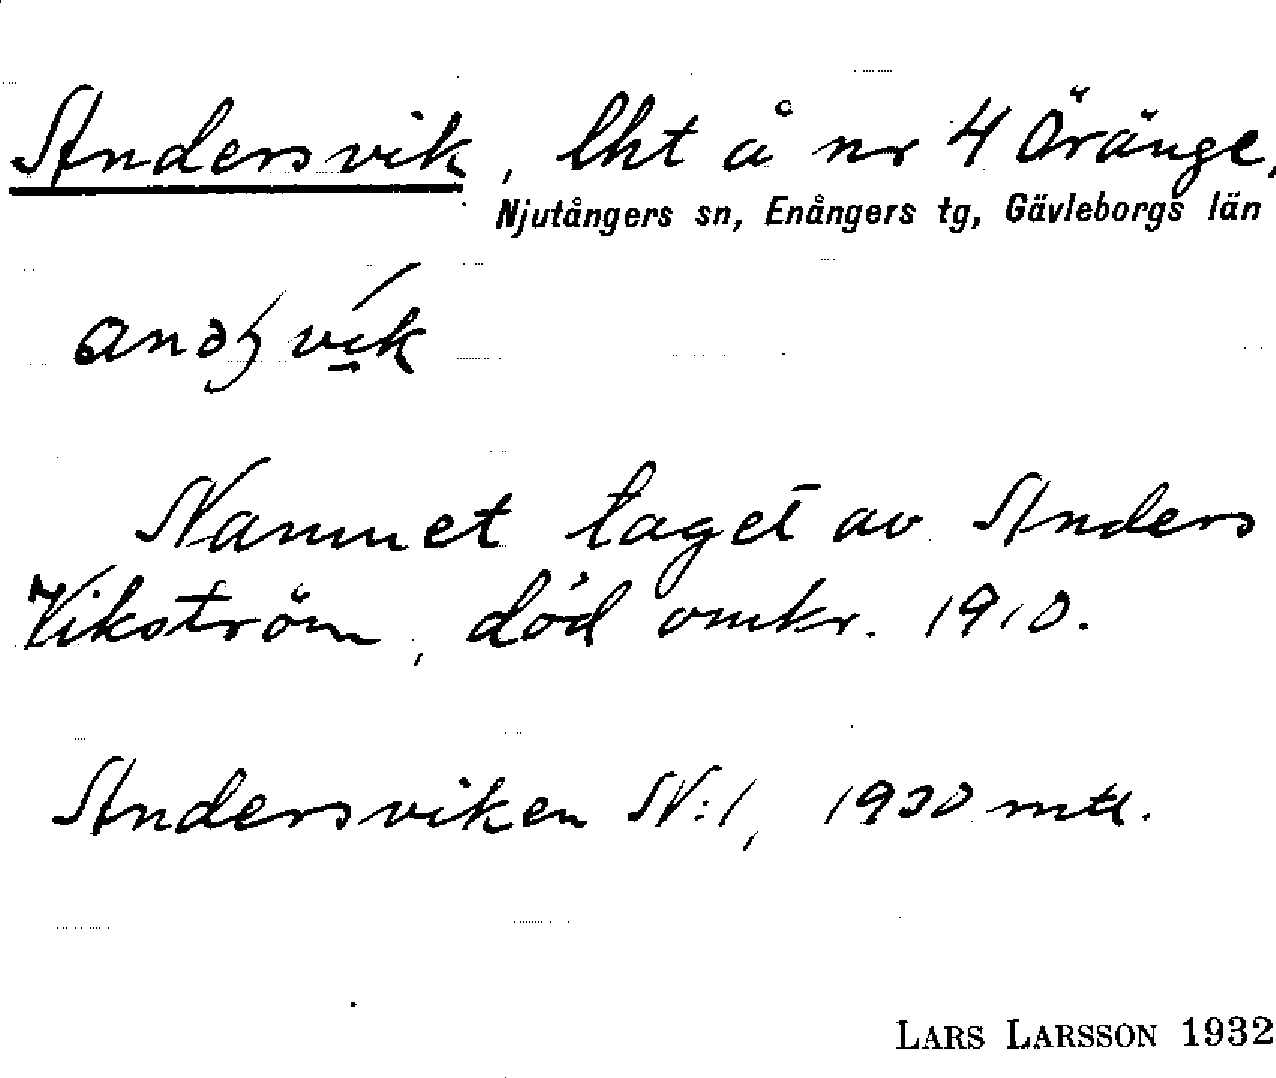 Andersvik, lht å nr 4 Öränge,
Njutångers sn, Enångers tg, Gävleborgs län
Namnet taget av Anders
Vikström, död omkr. 1910.
Andersviken N:1, 1930 mtl.
LARS LARSSON 1932